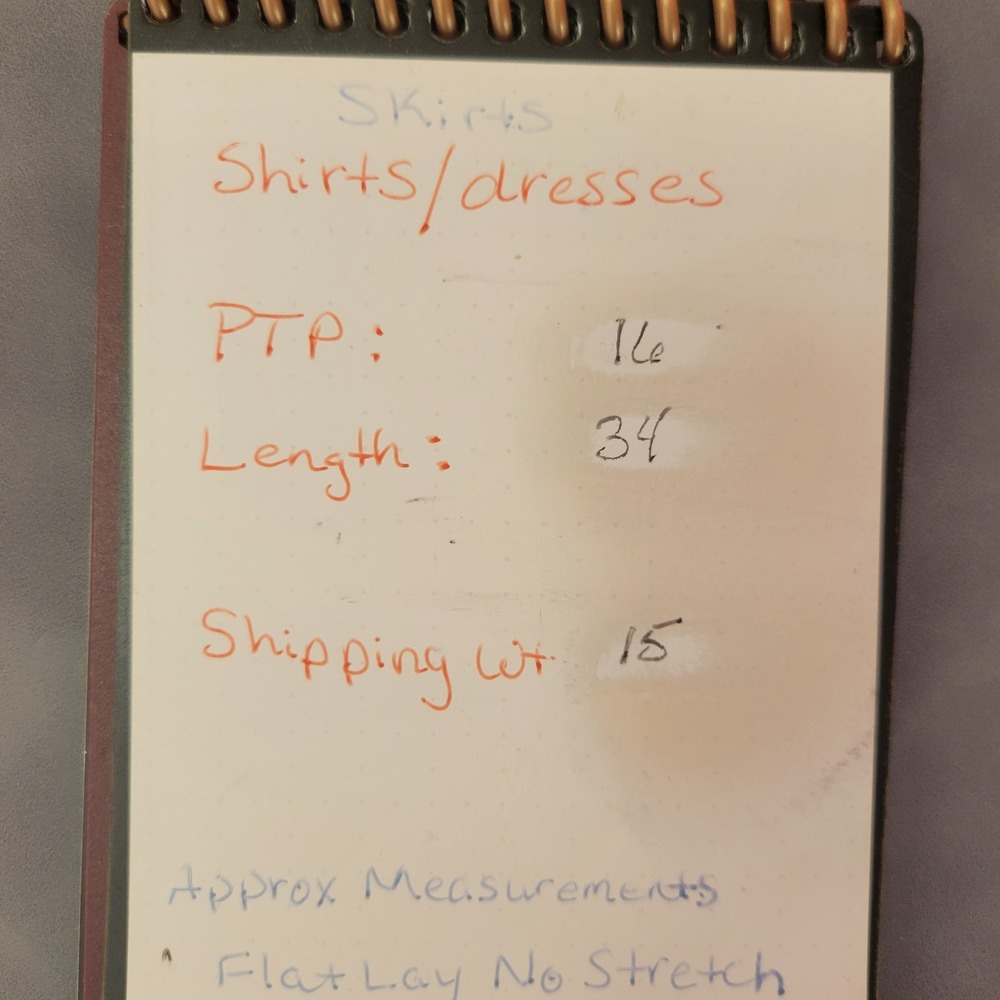 Skirts
Shirts/dresses
PTP: 16
Length: 34
Shipping Wt 15
Approx Measurements
Flat Lay No Stretch